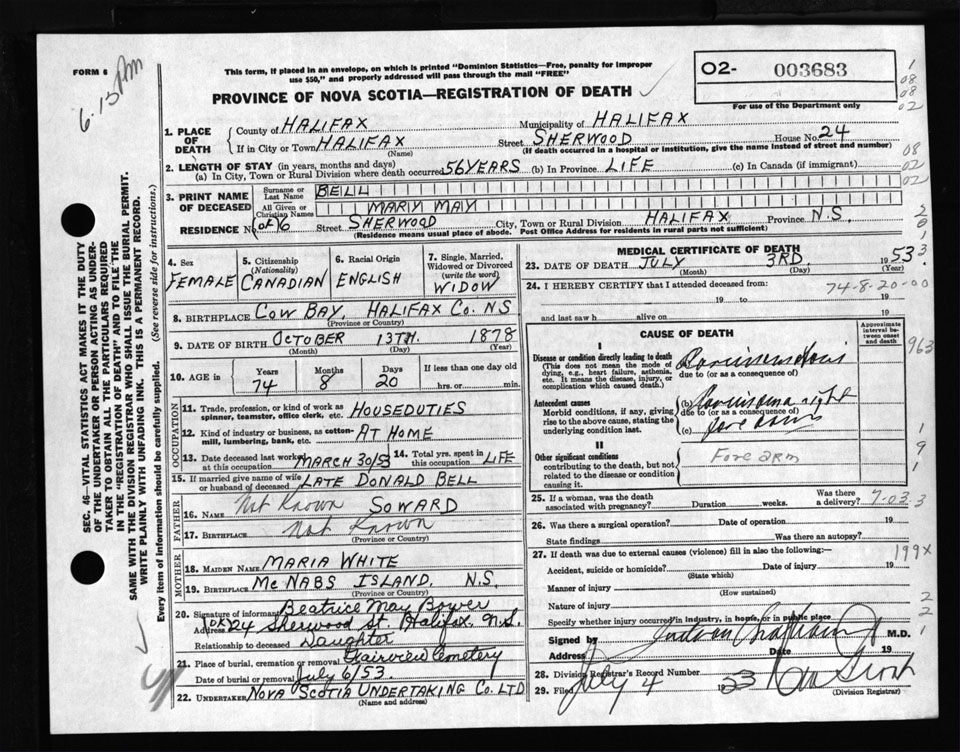 FORM 6
6.15 Pm
This form, if placed in an envelope, on which is printed "Dominion Statistics—Free, penalty for improper
use $50," and properly addressed will pass through the mail "FREE"
PROVINCE OF NOVA SCOTIA—REGISTRATION OF DEATH
02- 003683
For use of the Department only
1. PLACE OF DEATH
County of HALIFAX Municipality of HALIFAX
If in City or Town HALIFAX Street SHERWOOD House No. 24
(Name) (If death occurred in a hospital or institution, give the name instead of street and number)
2. LENGTH OF STAY (in years, months and days)
(a) In City, Town or Rural Division where death occurred 56 YEARS (b) In Province LIFE (c) In Canada (if immigrant)
3. PRINT NAME OF DECEASED
Surname or Last Name BELL
All Given or Christian Names MARY MAY
RESIDENCE No. Street SHERWOOD City, Town or Rural Division HALIFAX Province N.S.
(Residence means usual place of abode. Post Office Address for residents in rural parts not sufficient)
4. Sex
FEMALE
5. Citizenship
(Nationality)
CANADIAN
6. Racial Origin
ENGLISH
7. Single, Married, Widowed or Divorced
(write the word)
WIDOW
8. BIRTHPLACE COW BAY, HALIFAX CO. N.S
(Province or Country)
9. DATE OF BIRTH OCTOBER 13TH. 1878
(Month) (Day) (Year)
10. AGE in Years Months Days If less than one day
74 8 20 hrs. or min.
OCCUPATION
11. Trade, profession, or kind of work as spinner, teamster, office clerk, etc. HOUSEDUTIES
12. Kind of industry or business, as cotton-mill, lumbering, bank, etc. AT HOME
13. Date deceased last worked at this occupation MARCH 30/53
14. Total yrs. spent in this occupation LIFE
15. If married give name of wife or husband of deceased LATE DONALD BELL
FATHER
16. Name Not Known SOWARD
17. Birthplace Not Known
(Province or Country)
MOTHER
18. MAIDEN NAME MARIA WHITE
19. BIRTHPLACE MCNABS ISLAND. N.S.
(Province or Country)
20. Signature of informant Beatrice May Bower
Address 24 Sherwood St. Halifax, N.S.
Relationship to deceased Daughter
21. Place of burial, cremation or removal Fairview Cemetery
Date of burial or removal July 6/53.
22. UNDERTAKER NOVA SCOTIA UNDERTAKING CO. LTD
(Name and address)
MEDICAL CERTIFICATE OF DEATH
23. DATE OF DEATH JULY 3RD. 1953.
(Month) (Day) (Year)
24. I HEREBY CERTIFY that I attended deceased from:
74-8-20-00
19 to 19
and last saw h alive on 19
CAUSE OF DEATH
Approximate interval between onset and death
I
Disease or condition directly leading to death
(This does not mean the mode of dying, e.g., heart failure, asthenia, etc. It means the disease, injury, or complication which caused death.)
(a) Carcinomatosis
due to (or as a consequence of)
Antecedent causes
Morbid conditions, if any, giving rise to the above cause, stating the underlying condition last.
(b) Carcinoma right
due to (or as a consequence of)
(c) fore arm
II
Other significant conditions
contributing to the death, but not related to the disease or condition causing it.
Fore arm
25. If a woman, was the death associated with pregnancy? Duration weeks. Was there a delivery? 7.03.3
26. Was there a surgical operation? Date of operation 19
State findings Was there an autopsy?
27. If death was due to external causes (violence) fill in also the following:—
199X
Accident, suicide or homicide? Date of injury 19
(State which)
Manner of injury
(How sustained)
Nature of injury
Specify whether injury occurred in industry, in home, or in public place
Signed by M.D.
Address Date 19
28. Division Registrar's Record Number
29. Filed July 4 1953
(Division Registrar)
SEC. 46—VITAL STATISTICS ACT MAKES IT THE DUTY
OF THE UNDERTAKER OR PERSON ACTING AS UNDER-
TAKER TO OBTAIN ALL THE PARTICULARS REQUIRED
IN THE "REGISTRATION OF DEATH" AND TO FILE THE
SAME WITH THE DIVISION REGISTRAR WHO SHALL ISSUE THE BURIAL PERMIT.
WRITE PLAINLY WITH UNFADING INK. THIS IS A PERMANENT RECORD.
Every item of information should be carefully supplied. (See reverse side for instructions.)